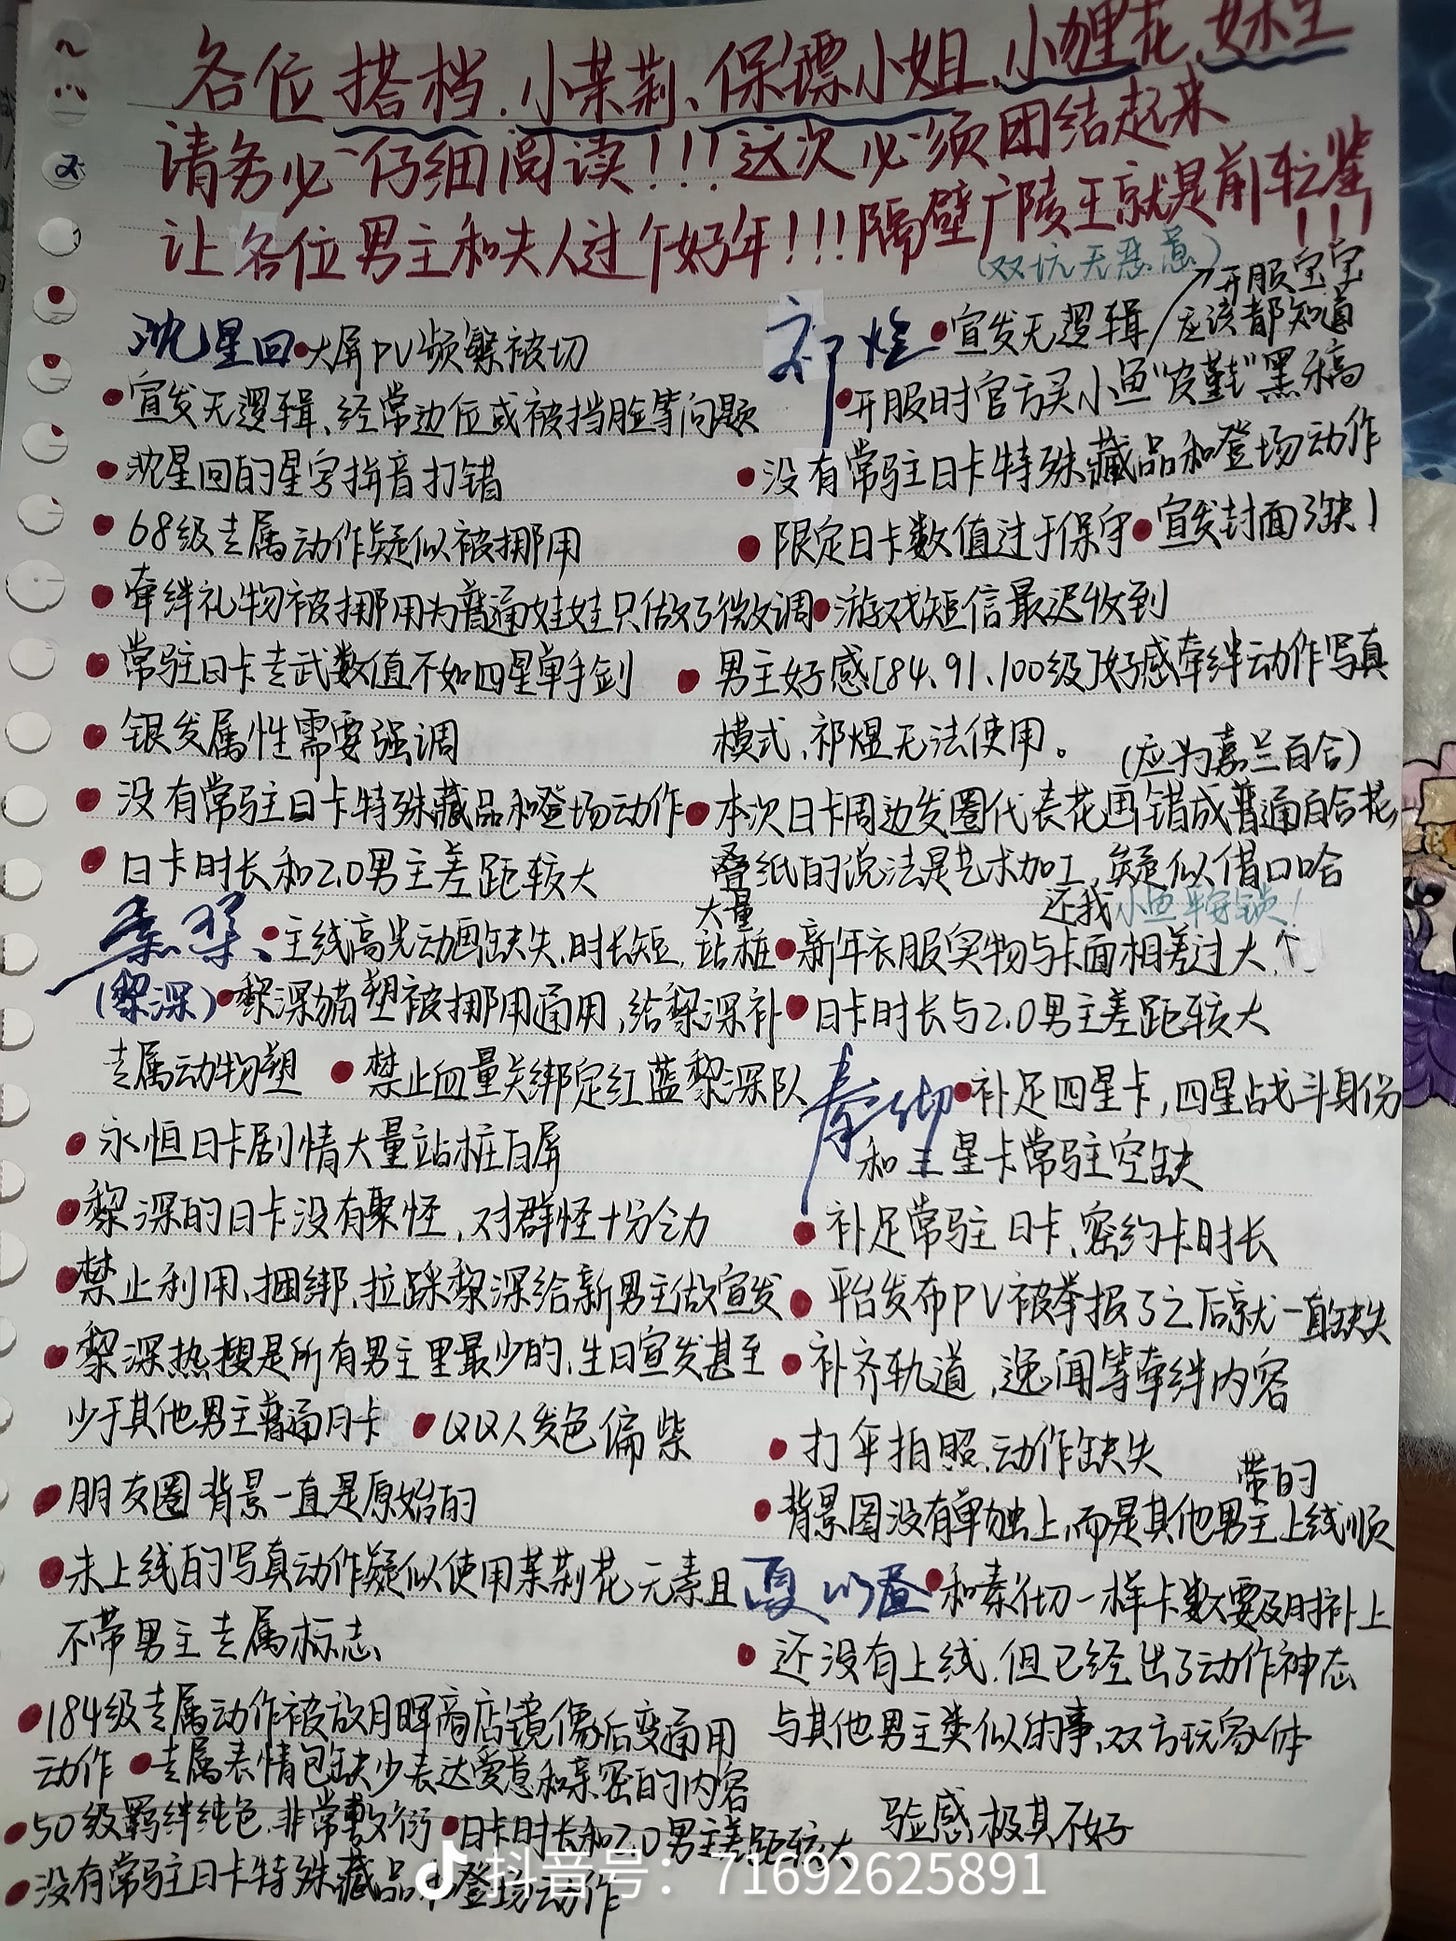 各位搭档、小茉莉、保镖小姐、小狸花、妹主
请务必仔细阅读!!!这次必须团结起来
让各位男主和夫人过个好年!!!隔壁广陵王就是前车之鉴!!!
(双坑无恶意)
沈星回•大屏PV频繁被切
•宣发无逻辑、经常边位或被挡脸等问题
•沈星回的星字拼音打错
•68级专属动作疑似被挪用
•牵绊礼物被挪用为普通娃娃只做了微调
•常驻日卡专武数值不如四星单手剑
•银发属性需要强调
•没有常驻日卡特殊藏品和登场动作
•日卡时长和2.0男主差距较大
(黎深)
•主线高光动画缺失、时长短、大量站桩
•黎深猫塑被挪用通用,给黎深补
专属动物塑 •禁止血量关绑定红蓝黎深队
•永恒日卡剧情大量站桩白屏
•黎深的日卡没有聚怪、对群怪十分乏力
•禁止利用、捆绑、拉踩黎深给新男主做宣发
•黎深热搜是所有男主里最少的、生日宣发甚至
少于其他男主普通月卡 •双人发色偏柴
•朋友圈背景一直是原始的
•未上线的写真动作疑似使用茉莉花元素且
不带男主专属标志
•184级专属动作被放月晖商店镜像后变通用
动作 •专属表情包缺少表达爱意和亲密的内容
•50级羁绊纯色、非常敷衍 •日卡时长和2.0男主差距较大
•没有常驻日卡特殊藏品和登场动作
祁煜•宣发无逻辑
↗开服宝宝
应该都知道
•开服时官方买小鱼"皮艺"黑稿
•没有常驻日卡特殊藏品和登场动作
•限定日卡数值过于保守 •宣发封面缺!
•游戏短信最迟收到
•男主好感[84、91、100级]好感牵绊动作写真
模式、祁煜无法使用。
(应为嘉兰百合)
•本次日卡周边发圈代表花画错成普通百合花,
叠纸的说法是艺术加工,疑似借口哈
还我小鱼平安锁!
•新年衣服实物与卡面相差过大,↑
•日卡时长与2.0男主差距较大
秦彻•补足四星卡,四星战斗身份
和三星卡常驻空缺
•补足常驻日卡、密约卡时长
•平台发布PV被举报了之后就一直缺失
•补齐轨道、逸闻等牵绊内容
•打伞拍照、动作缺失
•背景图没有单独上、而是其他男主上线顺
带的
夏以昼•和秦彻一样卡数要及时补上
•还没有上线、但已经出了动作神态
与其他男主类似的事、双方玩家体
验感极其不好
抖音号:71692625891